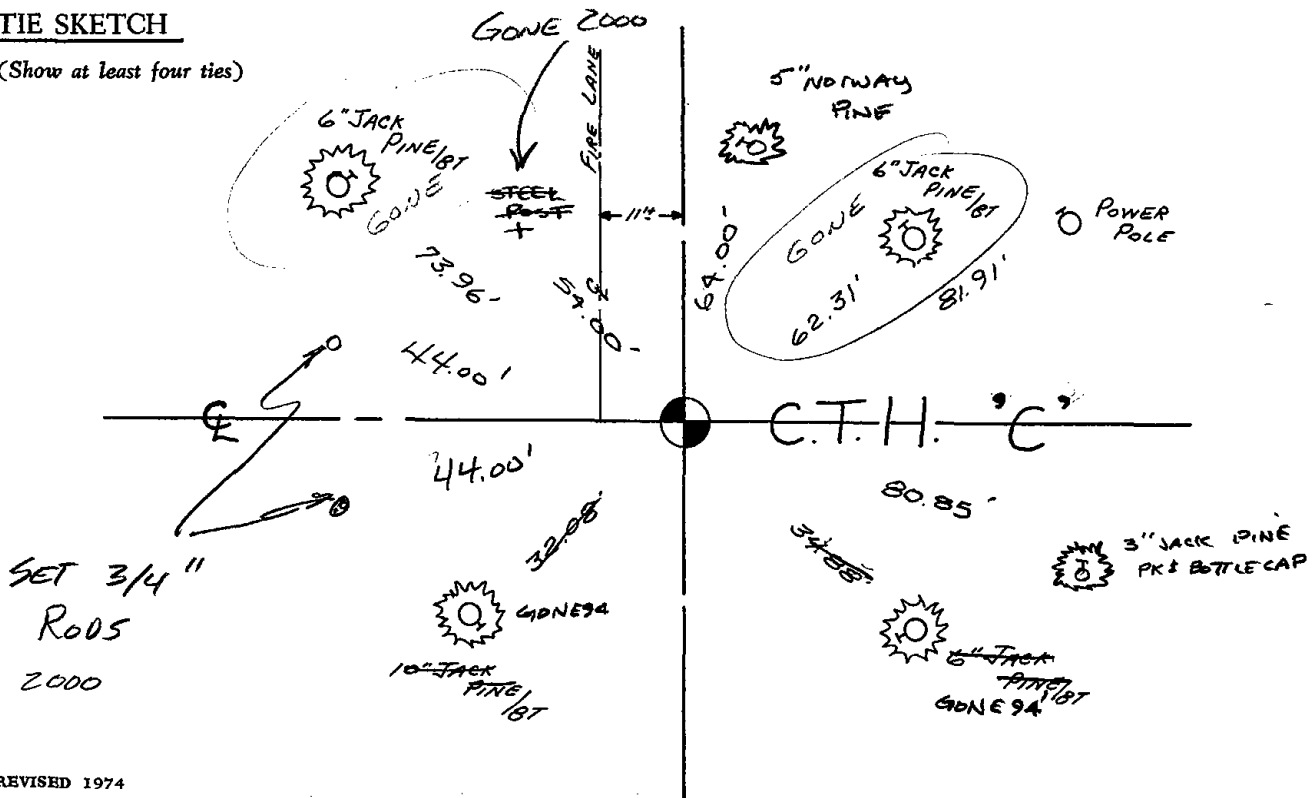 TIE SKETCH
(Show at least four ties)
GONE 2000
FIRE LANE
5" NORWAY
PINE
6" JACK
PINE/BT
GONE
STEEL
POST
+
11'±
6" JACK
PINE/BT
GONE
POWER
POLE
73.96'
54.00'
64.00'
62.31'
81.91'
44.00'
C.T.H. "C"
44.00'
80.85'
32.08'
34.88'
SET 3/4"
RODS
2000
GONE 94
10" JACK
PINE/BT
3" JACK PINE
PK & BOTTLE CAP
6" JACK
PINE/BT
GONE 94'
REVISED 1974